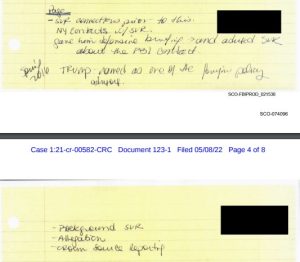 Page
- SVR connections prior to this.
NY contacts w/ SVR.
gave him defensive briefing → and advised SVR
about the 1951 contact.
Trump named as one of the foreign policy
advisors.
SCO-FBIPROD_021536
SCO-074096
Case 1:21-cr-00582-CRC Document 123-1 Filed 05/08/22 Page 4 of 8
- Background SVR
- Allegation
- CROWN source reporting